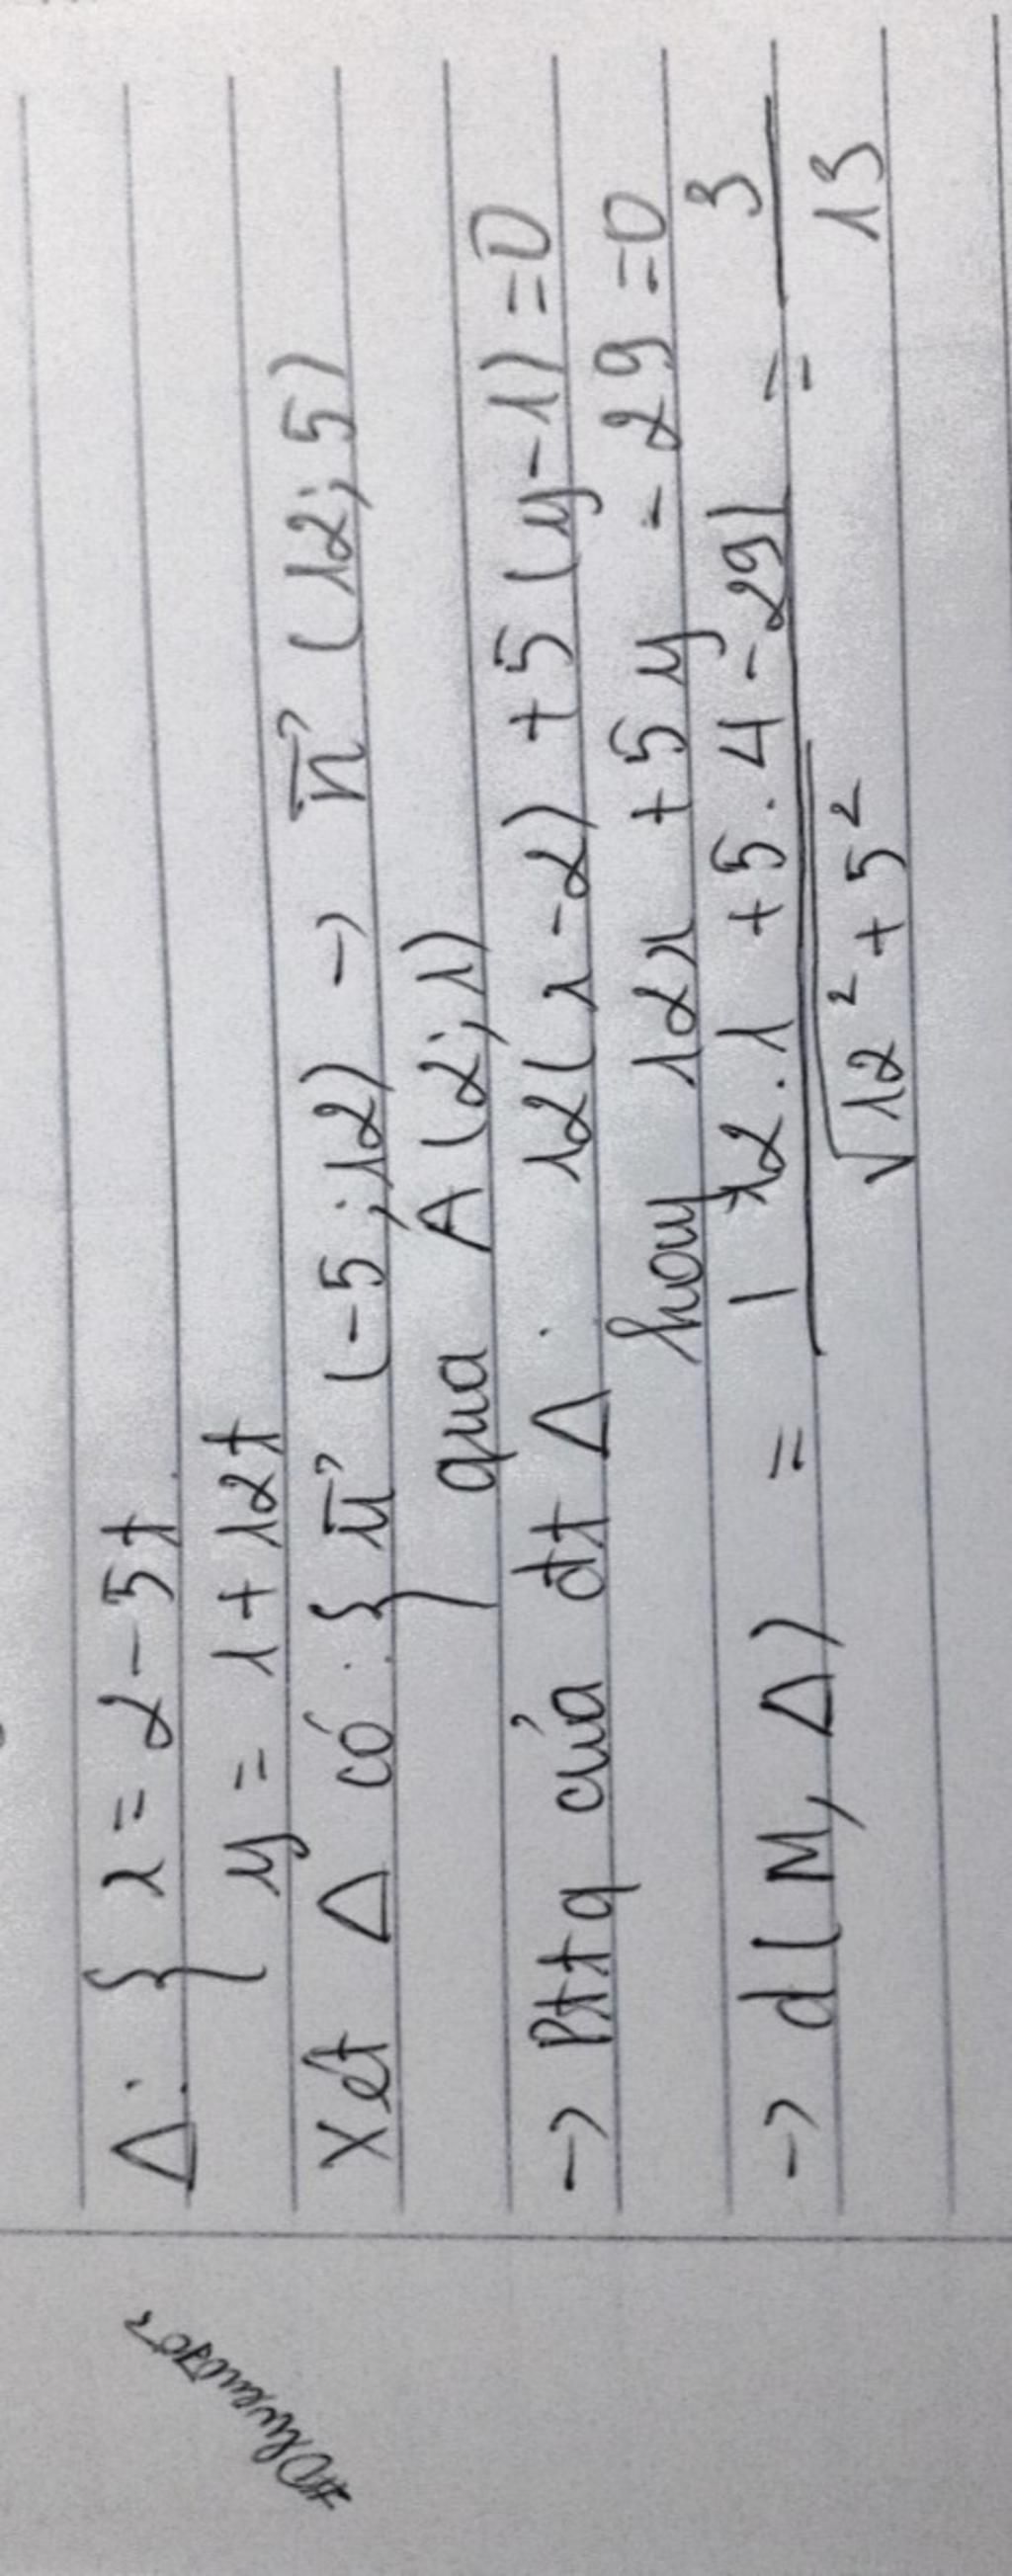 Δ: { x = 2 - 5t
y = 1 + 12t
Xét Δ có: { u⃗ (-5; 12) → n⃗ (12; 5)
qua A (2; 1)
→ Pttq của đt Δ: 12(x-2) + 5(y-1) = 0
hay 12x + 5y - 29 = 0
→ d(M, Δ) = |12.1 + 5.4 - 29| / √12² + 5² = 3 / 13